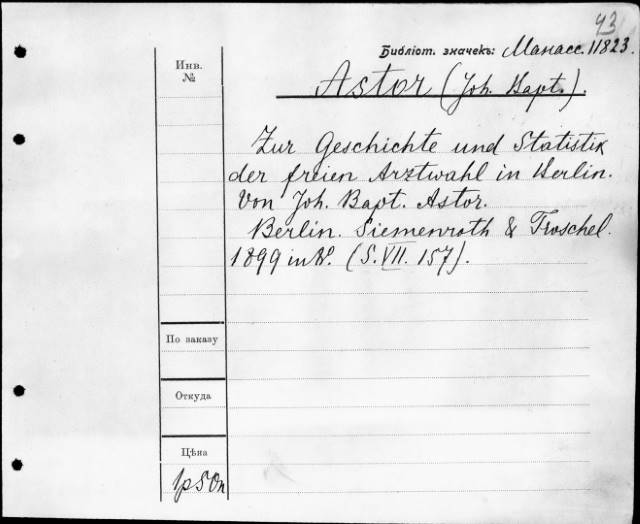 93
Библіот. значекъ: Манасс. 11823.
Инв.
№
Astor (Joh. Bapt.).
Zur Geschichte und Statistik
der freien Arztwahl in Berlin.
Von Joh. Bapt. Astor.
Berlin. Siemenroth & Troschel.
1899 in 8°. (S. VII. 157).
По заказу
Откуда
Цѣна
1р50к